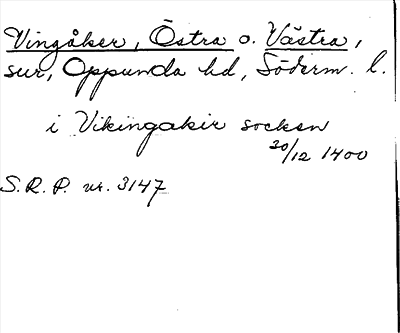 Vingåker, Östra o. Västra,
sur, Oppunda hd, Söderm. l.
i Vikingakir socken
20/12 1400
S.R.P. nr. 3147